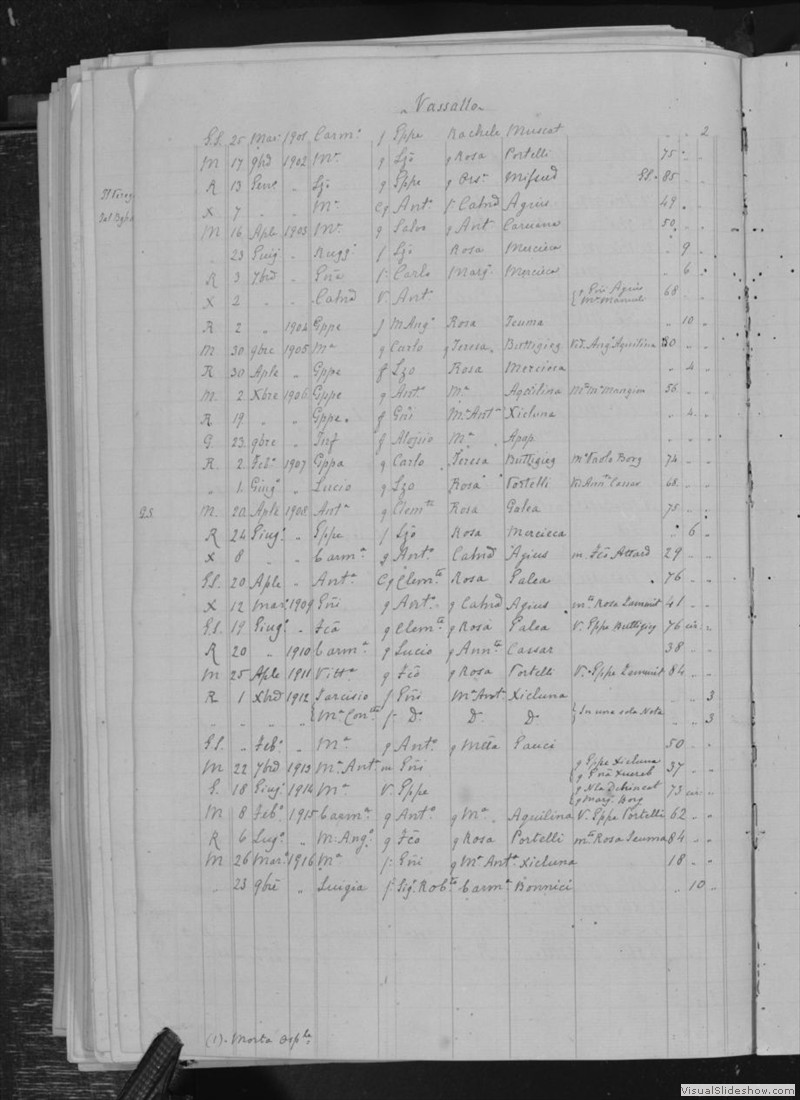 Vassallo
G.S. 25 Mar. 1901 Carmª f Gppe Rachele Muscat " " 2
M 17 9brē 1902 Mª g Lzō g Rosa Portelli 75 " "
R 13 Genº " Lzō g Gppe g Orsª Mifsud G.S. 85 " "
St Teresa
X 7 " " Mª Cg Antº f. Catnā Agius 49 " "
Sal Dghª
M 16 Aple 1903 Mª g Salvo g Ant Caruana 50 " "
" 23 Giugº " Ruggº f Lzō Rosa Mercieca " 9 "
R 3 7brē " Gnā f. Carlo Margª Mercieca " 6 "
X 2 " " Catnā V. Ant g Gnī Agius 68 " "
R 2 " 1904 Gppe f M.Angº Rosa Teuma " 10 "
M 30 9bre 1905 Mª g Carlo g Teresa Buttigieg Vª Angº Aquilina 80 " "
R 30 Aple " Gppe f Lzo Rosa Mercieca " 4 "
M 2 Xbre 1906 Gppe g Antº Mª Aquilina Mtº Mª Mangion 56 " "
R 19 " " Gppe f Gnī Mª Antª Xicluna " 4 "
G 23 9bre " Inf f Aloisio Mª Apap " " "
R 2 Febº 1907 Gppa g Carlo Teresa Buttigieg mª Paolo Borg 74 " "
" 1 Giugº " Lucio g Lzo Rosa Portelli Vº Annª Cassar 68 " "
G.S. M 20 Aple 1908 Antª g Clemte Rosa Galea 75 " "
R 24 Giugº " Gppe f Lzō Rosa Mercieca " 6 "
X 8 " " Carmª g Antº Catnā Agius m. Fcō Attard 29 " "
G.S. 20 Aple " Antª Cg Clemte Rosa Galea 76 " "
X 12 Marº 1909 Gnī g Antº g Catnā Agius mtº Rosa Zammit 41 " "
G.S. 19 Giugº " Fcā g Clemte g Rosa Galea V. Gppe Buttigieg 76 " "
R 20 " 1910 Carmª g Lucio g Annta Cassar 38 " "
M 25 Aple 1911 Vittª g Fcō g Rosa Portelli Vª Gppe Zammit 84 " "
R 1 Xbrē 1912 Tarcisio f Gnī Mª Antª Xicluna " " 3
" " " " Mª Contta f. Dº Dº Dº In una sola Nota " " 3
G.S. " Febº " Mª g Antº g Mtta Gauci 50 " "
M 22 7brē 1913 Mª Antª m Gnī g Gppe Xicluna g Gnā Xuereb 37 " "
G. 18 Giugº 1914 Mª V. Gppe g Nla Debincat g Margª Borg 73 " "
M 8 Febº 1915 Carmª g Antº g Mª Aquilina V. Gppe Portelli 62 " "
R 6 Lugº " M. Angº g Fcō g Rosa Portelli mtº Rosa Teuma 84 " "
M 26 Marº 1916 Mª f. Gnī g Mª Antª Xicluna 18 " "
" 23 9brē " Luigia f Sigr Robto Carmª Bonnici " 10 "
(1). Morta Osple
VisualSlideshow.com